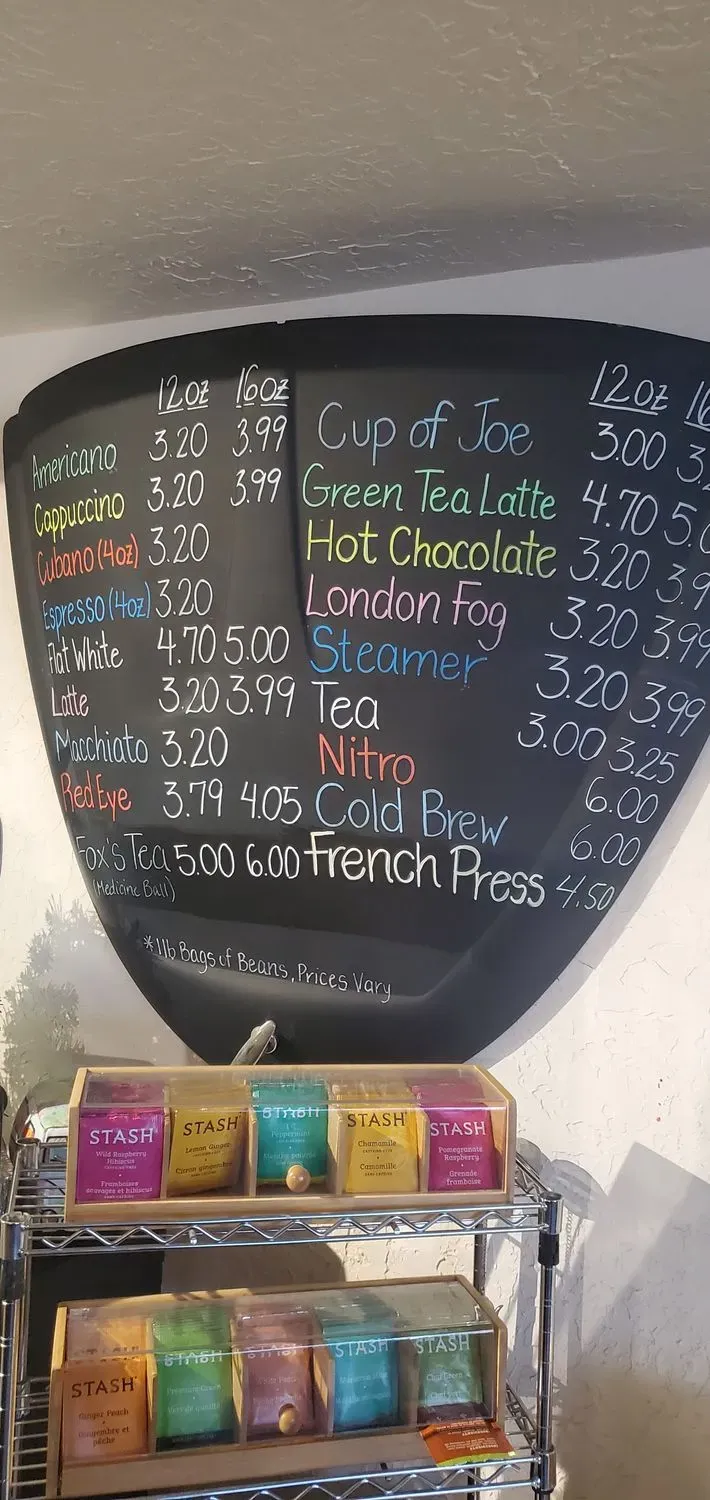 12oz 16oz
Americano 3.20 3.99
Cappuccino 3.20 3.99
Cubano (4oz) 3.20
Espresso (4oz) 3.20
Flat White 4.70 5.00
Latte 3.20 3.99
Macchiato 3.20
Red Eye 3.79 4.05
Fox's Tea 5.00 6.00
(Medicine Ball)
12oz
Cup of Joe 3.00
Green Tea Latte 4.70
Hot Chocolate 3.20
London Fog 3.20 3.99
Steamer 3.20 3.99
Tea 3.00 3.25
Nitro 6.00
Cold Brew 6.00
French Press 4.50
*1lb Bags of Beans, Prices Vary
STASH
Wild Raspberry
Hibiscus
CAFFEINE FREE
Framboises
sauvages et hibiscus
SANS CAFÉINE
STASH
Lemon Ginger
Citron gingembre
STASH
Peppermint
Menthe poivrée
STASH
Chamomile
CAFFEINE FREE
Camomille
SANS CAFÉINE
STASH
Pomegranate
Raspberry
Grenade
framboise
STASH
Ginger Peach
Gingembre et
pêche
STASH
Premium Green
STASH
STASH
STASH
Chai Green
Chai vert